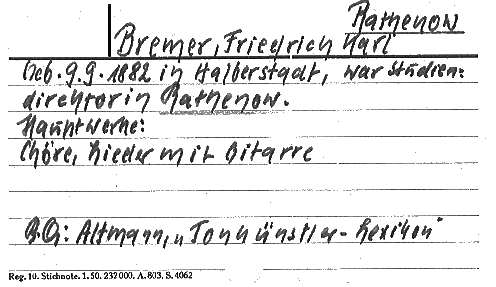 Rathenow
Bremer, Friedrich Karl
Geb. 9.9.1882 in Halberstadt, war Studien=
direktor in Rathenow.
Hauptwerke:
Chöre, Lieder mit Gitarre
B.Q: Altmann, „Tonkünstler-Lexikon"
Reg. 10. Stichnote. 1. 50. 232000. A. 803. S. 4062